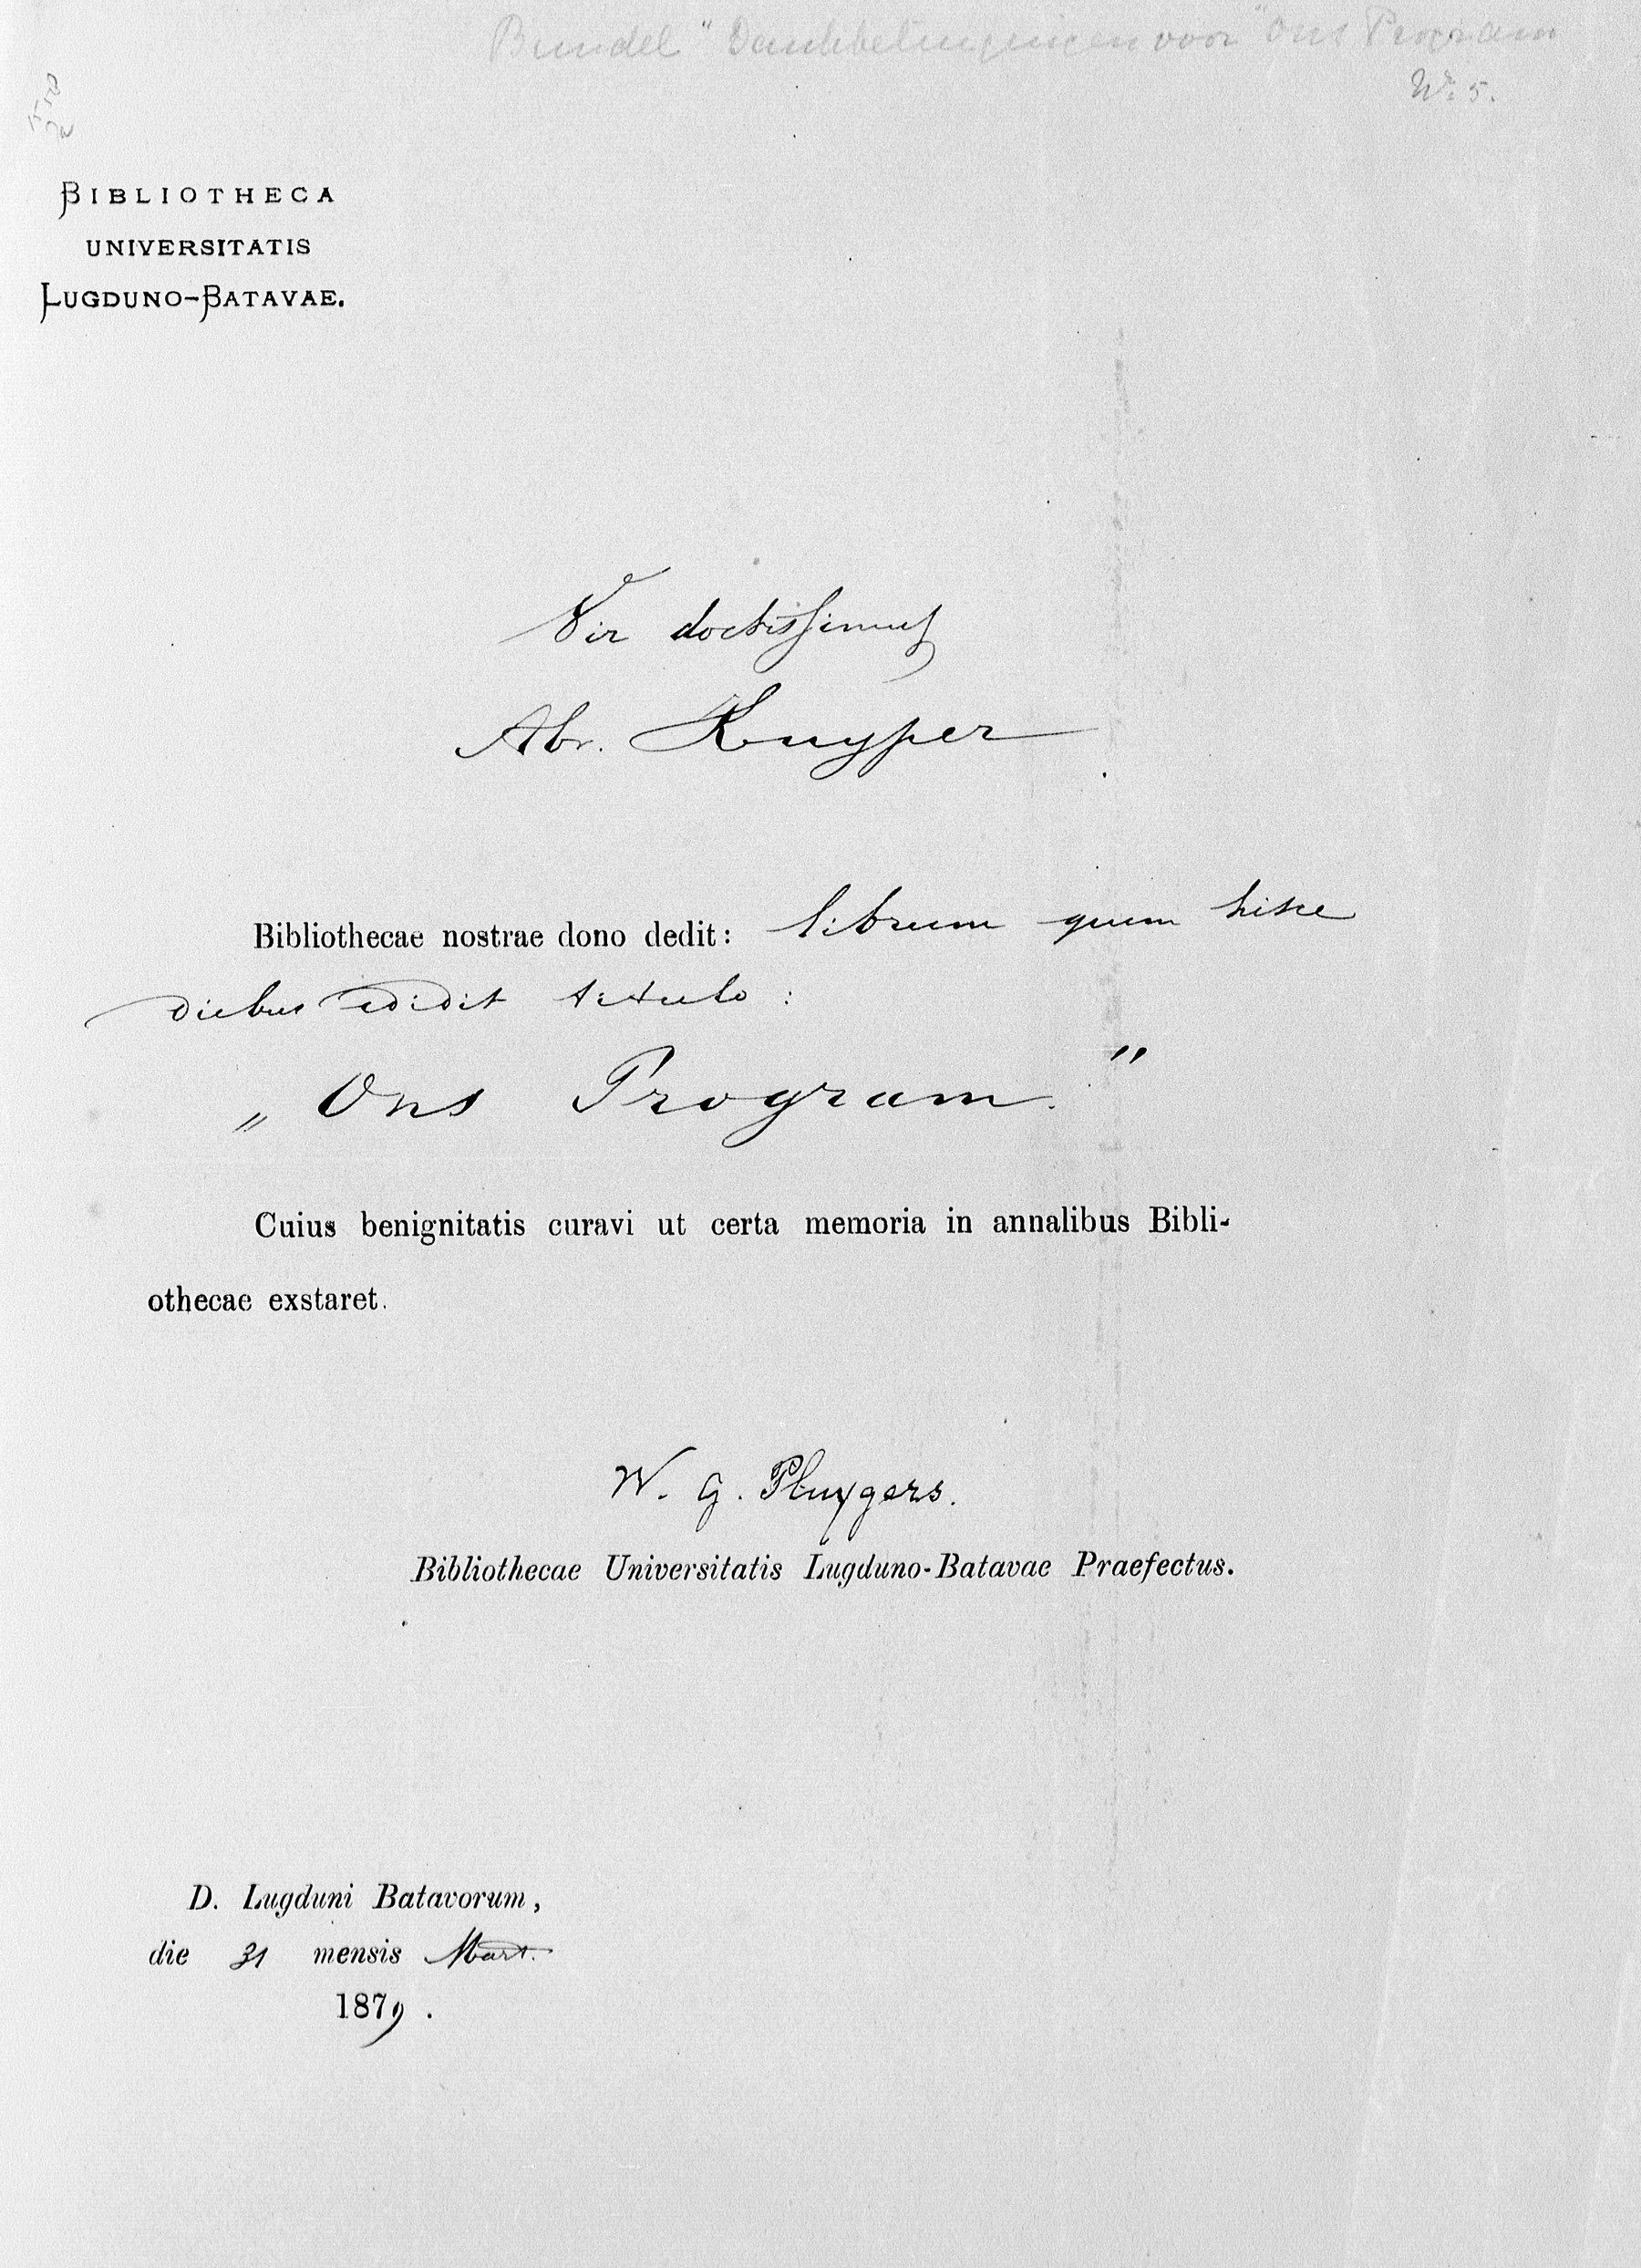 Bundel "Dankbetuigingen voor "Ons Program
No. 5.
BIBLIOTHECA
UNIVERSITATIS
LUGDUNO-BATAVAE.
Vir doctissimus
Abr. Kuyper
Bibliothecae nostrae dono dedit: librum quem hisce
diebus edidit titulo :
„ Ons Program. ”
Cuius benignitatis curavi ut certa memoria in annalibus Bibli-
othecae exstaret.
W. G. Pluygers.
Bibliothecae Universitatis Lugduno-Batavae Praefectus.
D. Lugduni Batavorum,
die 31 mensis Mart.
1879.